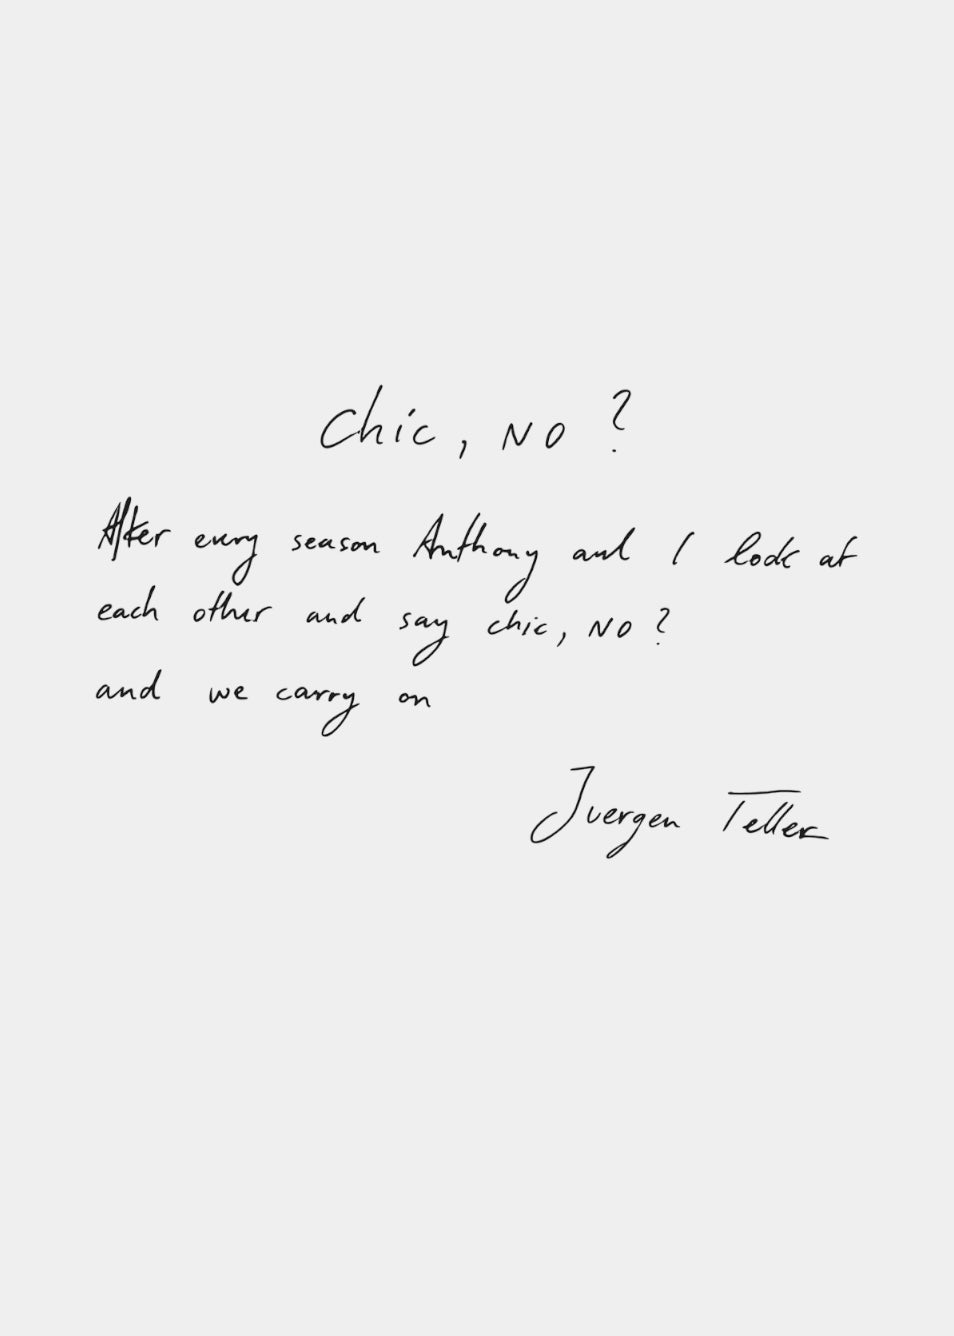 Chic, NO?
After every season Anthony and I look at
each other and say chic, NO?
and we carry on
Juergen Teller